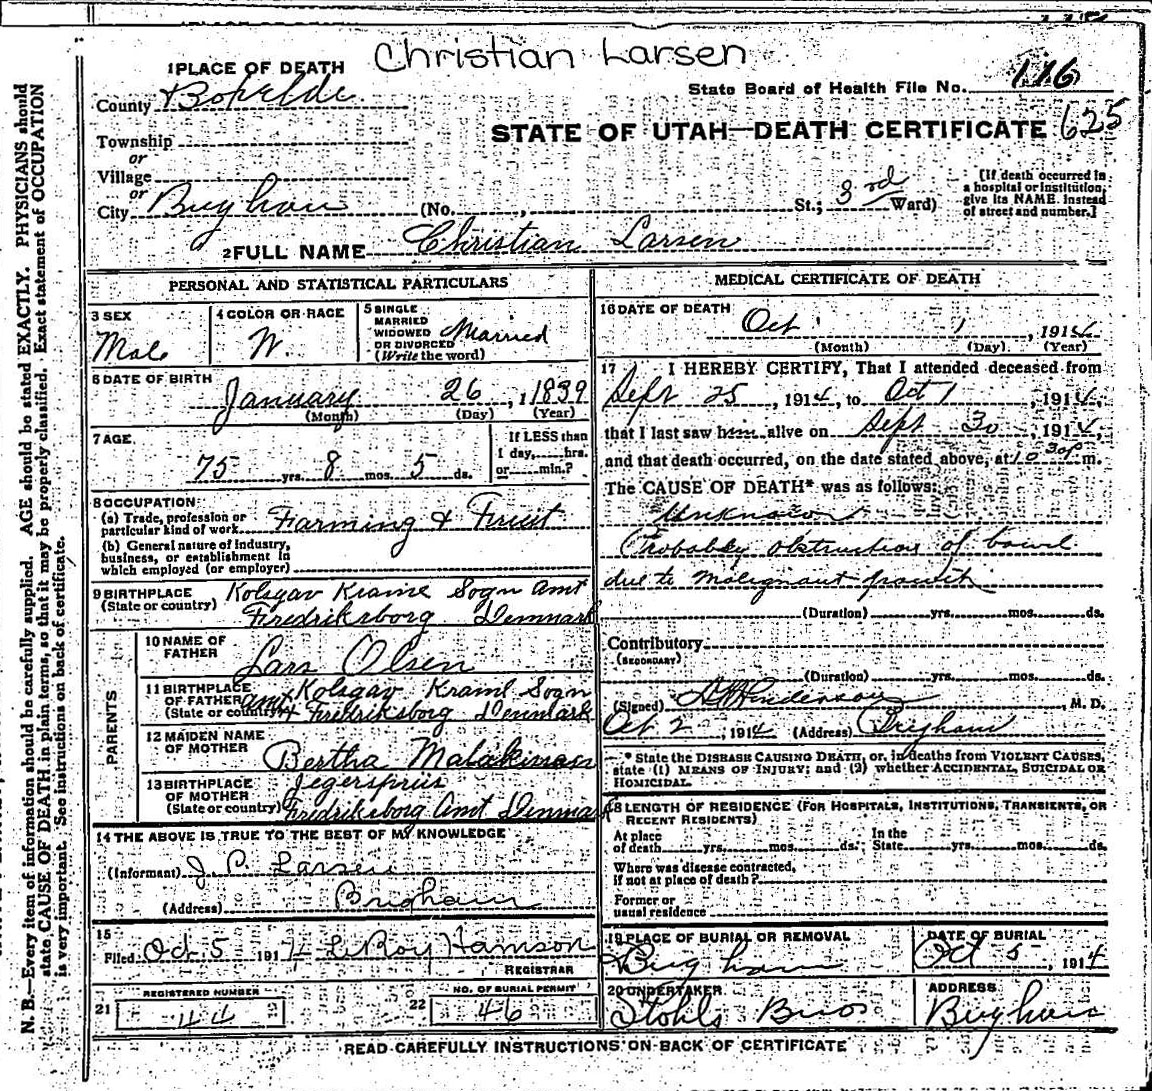 Christian Larsen
1 PLACE OF DEATH
State Board of Health File No. 116
County Boxelder
STATE OF UTAH—DEATH CERTIFICATE 625
Township
or
Village
or
City Brigham (No. , St.; 3rd Ward)
[If death occurred in a hospital or institution, give its NAME instead of street and number.]
2 FULL NAME Christian Larsen
PERSONAL AND STATISTICAL PARTICULARS
3 SEX
Male
4 COLOR OR RACE
W.
5 SINGLE
MARRIED
WIDOWED
OR DIVORCED
(Write the word)
Married
6 DATE OF BIRTH
January 26, 1839
(Month) (Day) (Year)
7 AGE
75 yrs. 8 mos. 5 ds.
If LESS than
1 day, hrs.
or min.?
8 OCCUPATION
(a) Trade, profession or
particular kind of work Farming & Fruit
(b) General nature of industry,
business, or establishment in
which employed (or employer)
9 BIRTHPLACE
(State or country)
Kolsgav Krame Sogn Amt
Fredriksborg Denmark
PARENTS
10 NAME OF
FATHER
Lars Olsen
11 BIRTHPLACE
OF FATHER
(State or country)
Kolsgav Krame Sogn
amt Fredriksborg Denmark
12 MAIDEN NAME
OF MOTHER
Bertha
13 BIRTHPLACE
OF MOTHER
(State or country)
Jegerspriis
Fredriksborg Amt Denmark
14 THE ABOVE IS TRUE TO THE BEST OF MY KNOWLEDGE
(Informant) J. P. Larsen
(Address) Brigham
15
Filed Oct. 5 1914 LeRoy
REGISTRAR
REGISTERED NUMBER
21 44
NO. OF BURIAL PERMIT
22 46
MEDICAL CERTIFICATE OF DEATH
16 DATE OF DEATH
Oct 1, 1914
(Month) (Day) (Year)
17 I HEREBY CERTIFY, That I attended deceased from
Sept 25, 1914, to Oct 1, 1914,
that I last saw him alive on Sept 30, 1914,
and that death occurred, on the date stated above, at 10 30 P m.
The CAUSE OF DEATH* was as follows:
Unknown
Probably obstruction of bowel
due to malignant growth
(Duration) yrs. mos. ds.
Contributory
(SECONDARY)
(Duration) yrs. mos. ds.
(Signed) Henderson, M. D.
Oct 2, 1914 (Address) Brigham
* State the DISEASE CAUSING DEATH, or, in deaths from VIOLENT CAUSES,
state (1) MEANS OF INJURY; and (2) whether ACCIDENTAL, SUICIDAL OR
HOMICIDAL.
18 LENGTH OF RESIDENCE (FOR HOSPITALS, INSTITUTIONS, TRANSIENTS, OR
RECENT RESIDENTS)
At place
of death yrs. mos. ds.;
In the
State yrs. mos. ds.
Where was disease contracted,
if not at place of death?
Former or
usual residence
19 PLACE OF BURIAL OR REMOVAL
Brigham
DATE OF BURIAL
Oct 5, 1914
20 UNDERTAKER
Stohls Bros
ADDRESS
Brigham
READ CAREFULLY INSTRUCTIONS ON BACK OF CERTIFICATE
N. B.—Every item of information should be carefully supplied. AGE should be stated EXACTLY. PHYSICIANS should
state CAUSE OF DEATH in plain terms, so that it may be properly classified. Exact statement of OCCUPATION
is very important. See instructions on back of certificate.